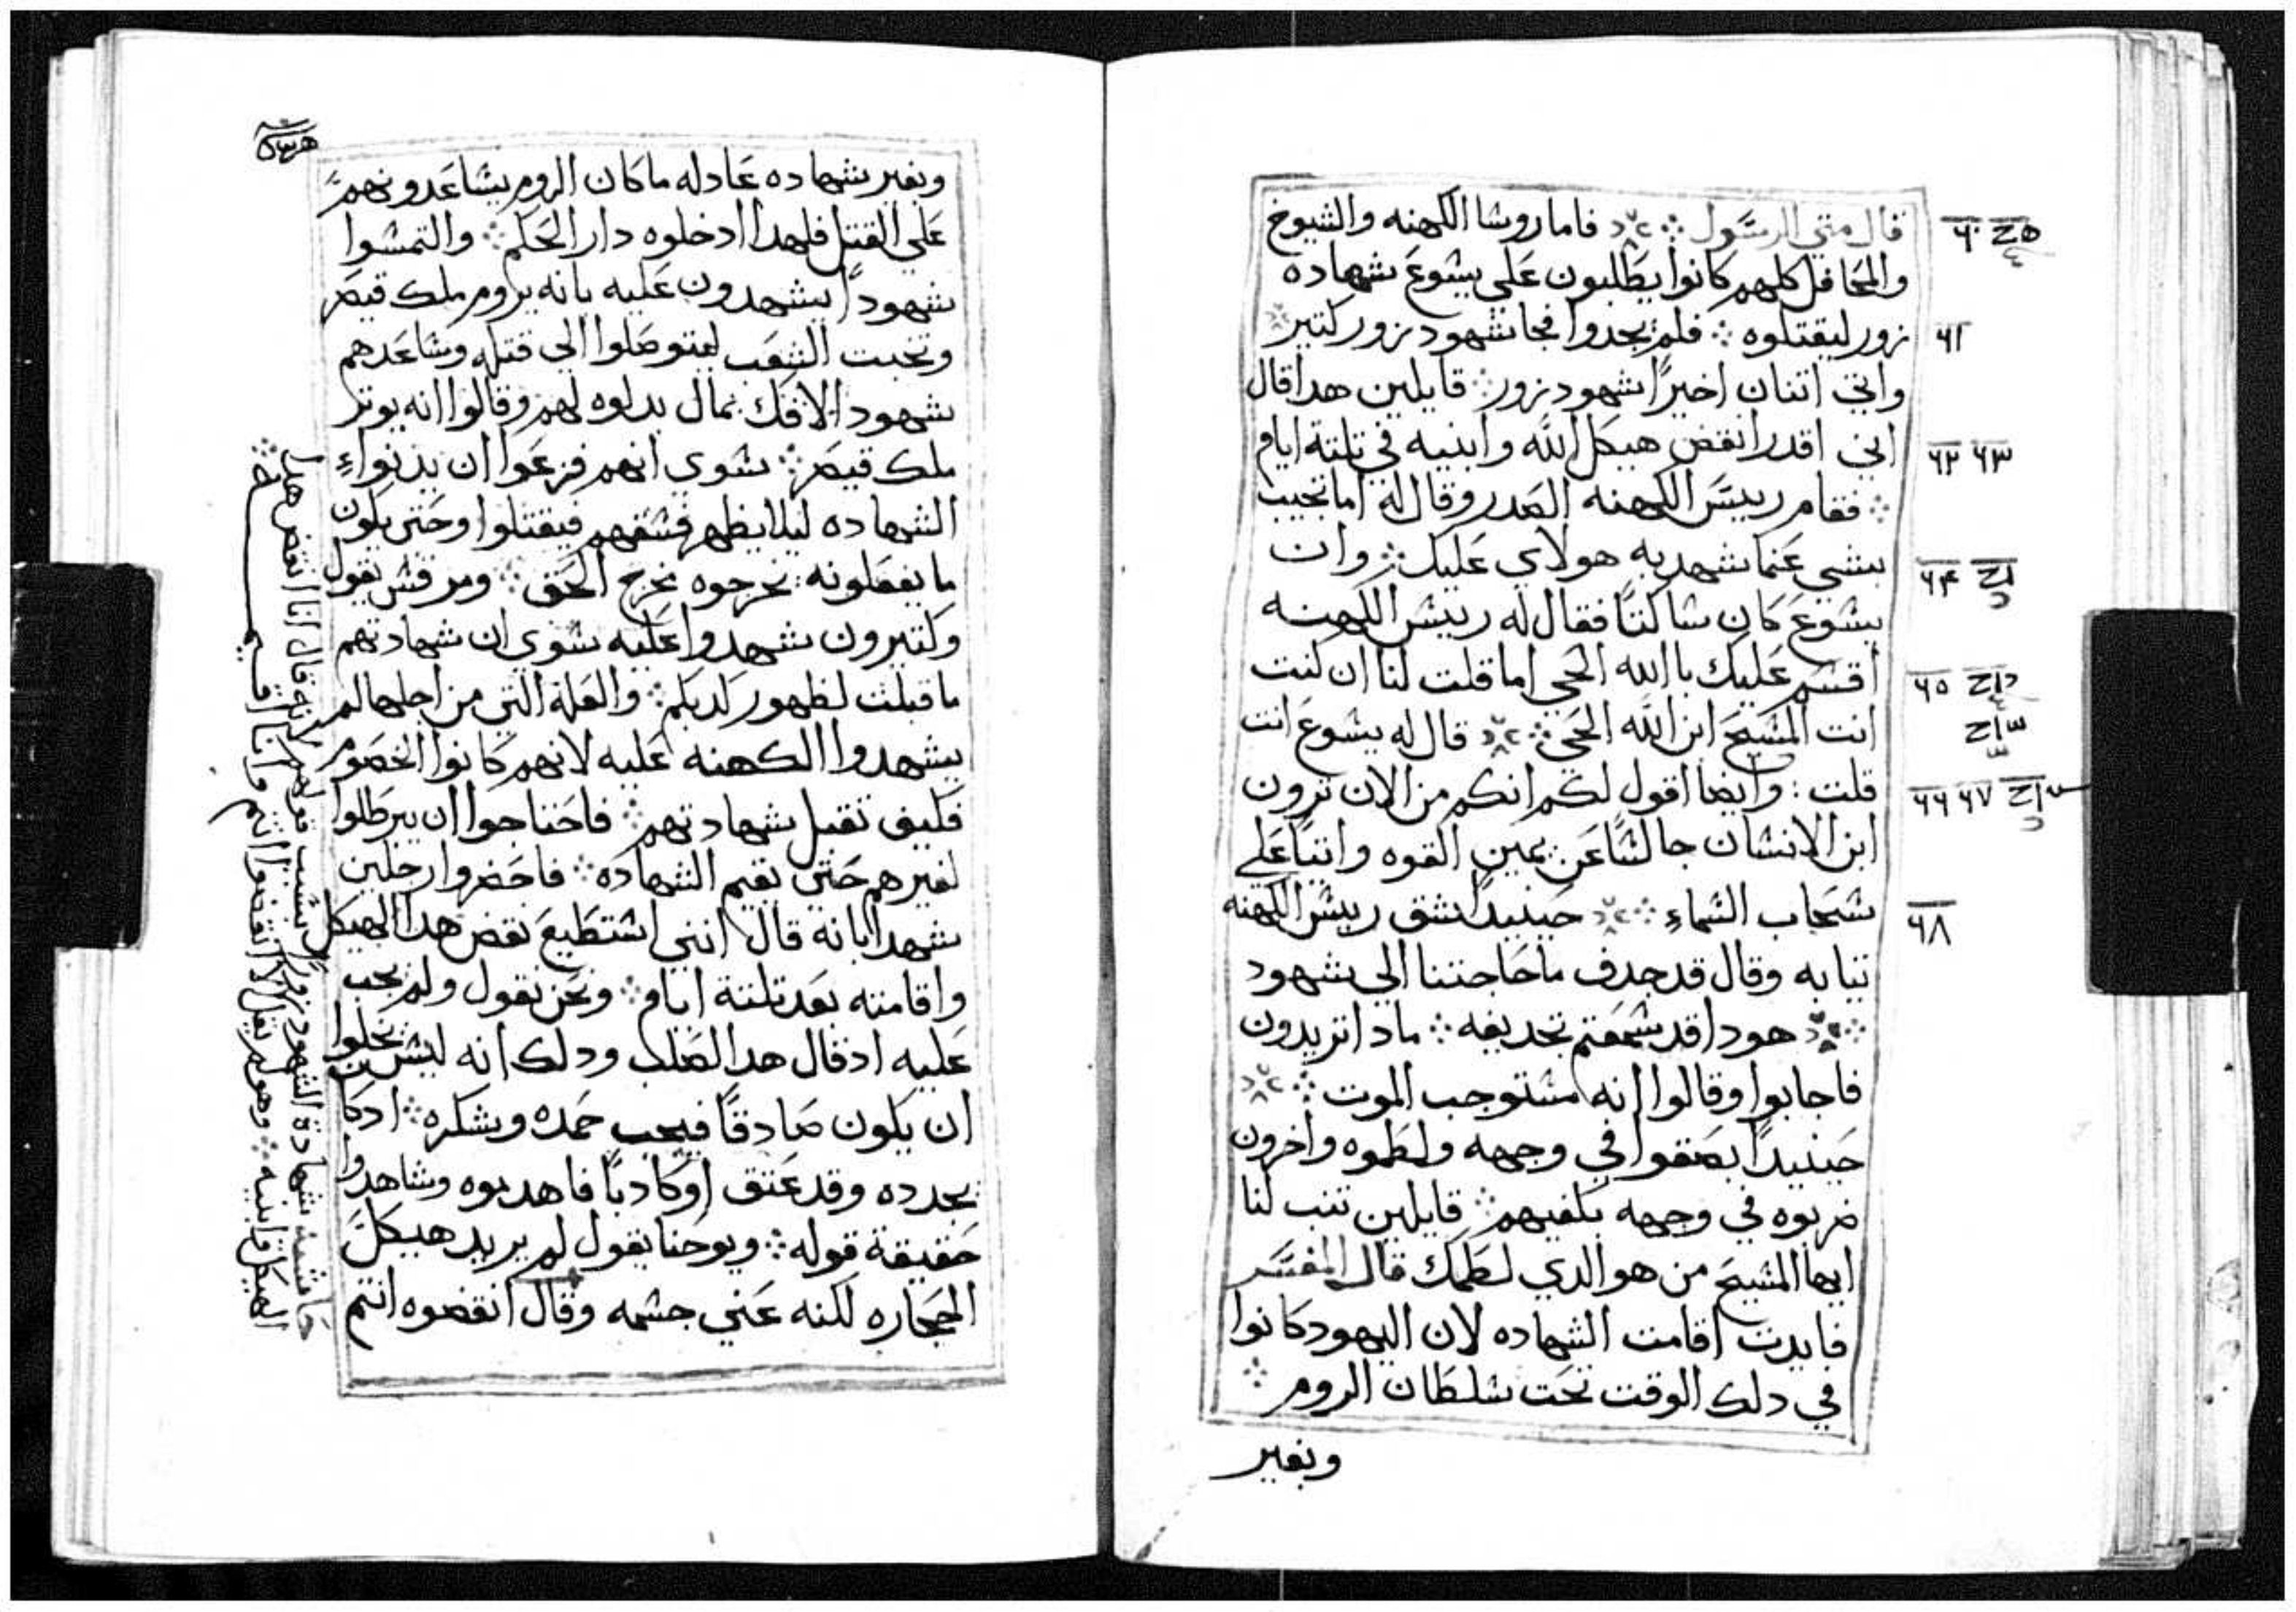 قال متي الرسول فاما روشا الكهنه والشيوخ
والمحافل كلهم كانوا يطلبون على يشوع شهاده
زور ليقتلوه فلم يجدوا فجا شهود زور كتير
واتي اتنان اخيرًا شهود زور قايلين هدا قال
اني اقدر انقض هيكل الله وابنيه في تلتة ايام
فقام رييس الكهنه الصدر وقال له اما تجيب
بشي عنما شهد به هولاي عليك وان
يشوع كان شاكتًا فقال له رييس الكهنه
اقشم عليك باالله الحي اما قلت لنا ان كنت
انت المشيح ابن الله الحي قال له يشوع انت
قلت وايضا اقول لكم انكم من الان ترون
ابن الانشان جالشًا عن يمين القوه واتيًا على
شحاب الشماء حينيدًا شق رييش الكهنه
تيابه وقال قد جدف ما حاجتنا الي شهود
هودا قد شمعتم تجديفه مادا تريدون
فاجابوا وقالوا انه مشتوجب الموت
حينيدًا بصقوا في وجهه ولطموه واخرون
ضربوه في وجهه بكفيهم قايلين تنب لنا
ايها المشيح من هو الدي لطمك قال المفشر
فايدت اقامت الشهاده لان اليهود كانوا
في دلك الوقت تحت شلطان الروم
وبغير
٦٠
٦١
٦٢ ٦٣
٦٤
٦٥
٦٦ ٦٧
٦٨
وبغير شهاده عادله ما كان الروم يشاعدونهم
علي القتل فلهدا ادخلوه دار الحكم والتمشوا
شهودًا يشهدون عليه بانه يروم ملك قيصر
وتخبت الشعب ليتوصلوا الي قتله وشاعدهم
شهود الافك بمال بدلوه لهم وقالوا انه يوتر
ملك قيصر شوي انهم فزعوا ان يدنواء
الشهاده ليلا يظهر فشقهم فيقتلوا وحتى يكون
ما يفعلونه يخرجوه مخرج الحق ومرقش يقول
وكتيرون شهدوا عليه شوي ان شهادتهم
ما قبلت لظهور كدبكم والعلة التي من اجلها لم
يشهدوا الكهنه عليه لانهم كانوا الخصوم
فكيف تقبل شهادتهم فاحتاجوا ان يبرطلوا
لغيرهم حتى يقيم الشهاده فاحضروا رجلين
شهدا بانه قال انني اشتطيع نقض هدا الهيكل
واقامته بعد تلتة ايام ونحن نقول ولم يجب
عليه اد قال هدا الصلب ودلك انه ليش يخلوا من
ان يكون صادقًا فيجب حمده وشكره اد كان
يجدده وقد عتق او كادبًا فاهدبوه وشاهدوا
حقيقة قوله ويوحنا يقول لم يريد هيكل
الحجاره لكنه عني جشمه وقال انقضوه انتم
حاشيه شهادة الشهود زورًا بشبب قولهم لانه قال انا انقض هدا
الهيكل وابنيه وهو لم يقل الا انقضوا انتم وانا اقيمه